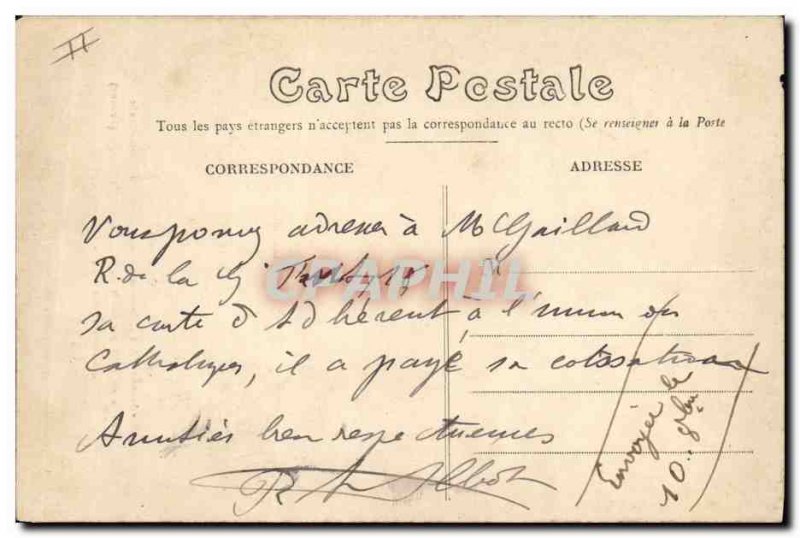 II
Carte Postale
Tous les pays étrangers n'acceptent pas la correspondance au recto (Se renseigner à la Poste
CORRESPONDANCE
ADRESSE
Vous pouvez adresser à Mr Gaillard
R. de la
sa carte d'Adhérent à l'union des
Catholiques, il a payé sa cotisation
Amitiés bien respectueuses
Envoyée le
10. 8bre
CPAPHIL